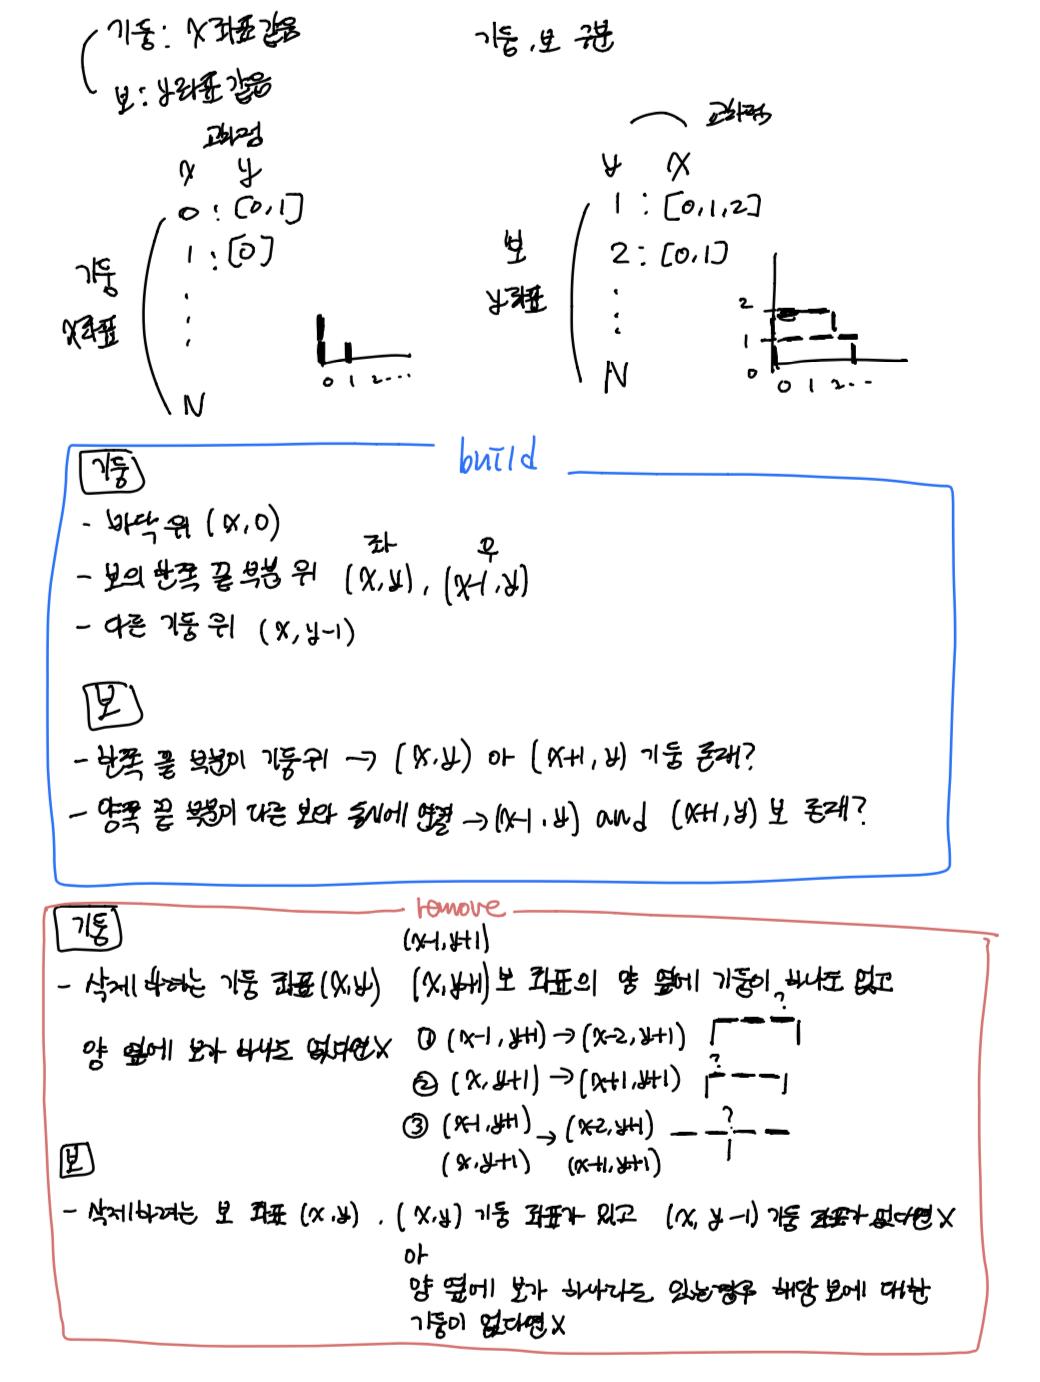 기둥 : x 좌표 같음
보 : y 좌표 같음
기둥, 보 구분
교차점
x y
0 : [0,1]
1 : [0]
기둥
x좌표
N
0 1 2 ...
교차점
y x
1 : [0,1,2]
2 : [0,1]
보
y좌표
N
2
1
0
0 1 2 ...
build
기둥
- 바닥 위 (x,0)
좌 우
- 보의 한쪽 끝 부분 위 (x,y), (x-1,y)
- 다른 기둥 위 (x,y-1)
보
- 한쪽 끝 부분이 기둥 위 → (x,y) or (x+1,y) 기둥 존재?
- 양쪽 끝 부분이 다른 보와 동시에 연결 → (x-1,y) and (x+1,y) 보 존재?
remove
기둥
(x-1,y+1)
- 삭제하려는 기둥 좌표 (x,y) (x,y+1) 보 좌표의 양 옆에 기둥이 하나도 없고
양 옆에 보가 하나도 없다면 x
① (x-1,y+1) → (x-2,y+1) ?
② (x,y+1) → (x+1,y+1) ?
③ (x-1,y+1) → (x-2,y+1) ?
(x,y+1) (x+1,y+1)
보
- 삭제하려는 보 좌표 (x,y). (x,y) 기둥 좌표가 있고 (x,y-1) 기둥 좌표가 없다면 x
or
양 옆에 보가 하나라도 있는 경우 해당 보에 대한
기둥이 없다면 x